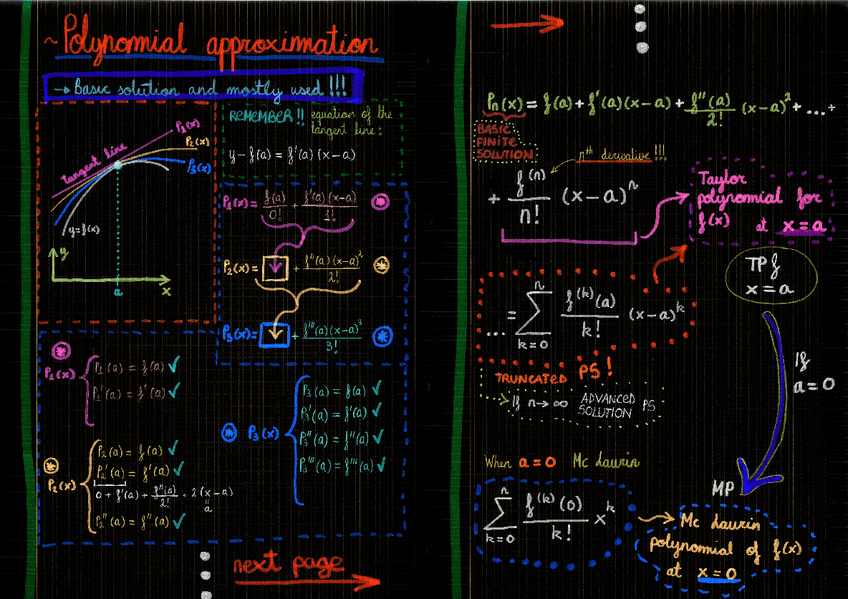 ~Polynomial approximation
→ Basic solution and mostly used !!!
tangent line
P₁(x)
P₂(x)
P₃(x)
y=f(x)
y
a
x
REMEMBER!! equation of the
tangent line:
y-f(a) = f'(a)(x-a)
P₁(x)= f(a)/0! + f'(a)(x-a)/1!
P₂(x)= ↓ + f''(a)(x-a)²/2!
P₃(x)= ↓ + f'''(a)(x-a)³/3!
P₁(x)
P₁(a) = f(a) ✓
P₁'(a) = f'(a) ✓
P₂(x)
P₂(a) = f(a) ✓
P₂'(a) = f'(a) ✓
0 + f'(a) + f''(a)/2! · 2(x-a)
a
P₂''(a) = f''(a) ✓
P₃(x)
P₃(a) = f(a) ✓
P₃'(a) = f'(a) ✓
P₃''(a) = f''(a) ✓
P₃'''(a) = f'''(a) ✓
next page
Pn(x) = f(a) + f'(a)(x-a) + f''(a)/2! (x-a)² + ...+
BASIC
FINITE
SOLUTION
nth derivative!!!
+ f⁽ⁿ⁾/n! (x-a)ⁿ
Taylor
polynomial for
f(x) at x=a
TP f
x=a
...= ∑ k=0 n f⁽ᵏ⁾(a)/k! (x-a)ᵏ
TRUNCATED PS!
If n→∞ ADVANCED
SOLUTION PS
If
a=0
When a=0 Mc Laurin
MP
∑ k=0 n f⁽ᵏ⁾(0)/k! xᵏ
Mc Laurin
polynomial of f(x)
at x=0